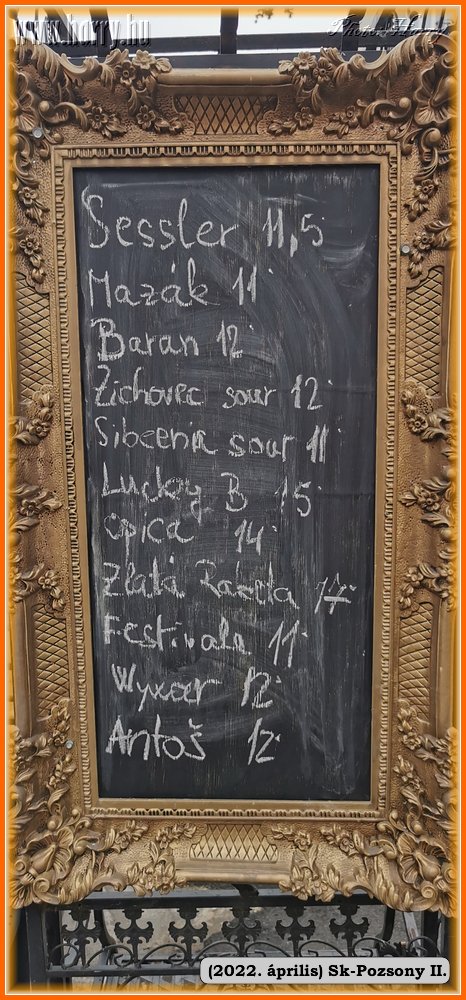 www.horry.hu
Photo: Horry
Sessler 11,5°
Mazák 11°
Baran 12°
Zichovec sour 12°
Sibeeria sour 11°
Lucky B 15°
opica 14°
Zlatá Raketa 17°
Festivale 11°
Wywar 12°
Antoš 12°
(2022. április) Sk-Pozsony II.